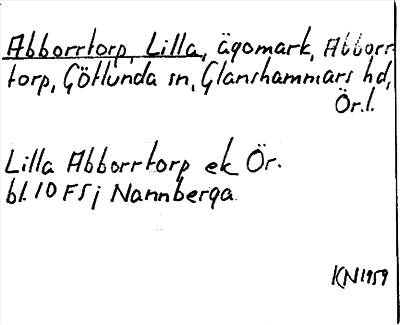 Abborrtorp, Lilla, ägomark, Abborr-
torp, Götlunda sn, Glanshammars hd,
Ör.l.
Lilla Abborrtorp ek Ör.
bl. 10 F5j Nannberga
KN 1959